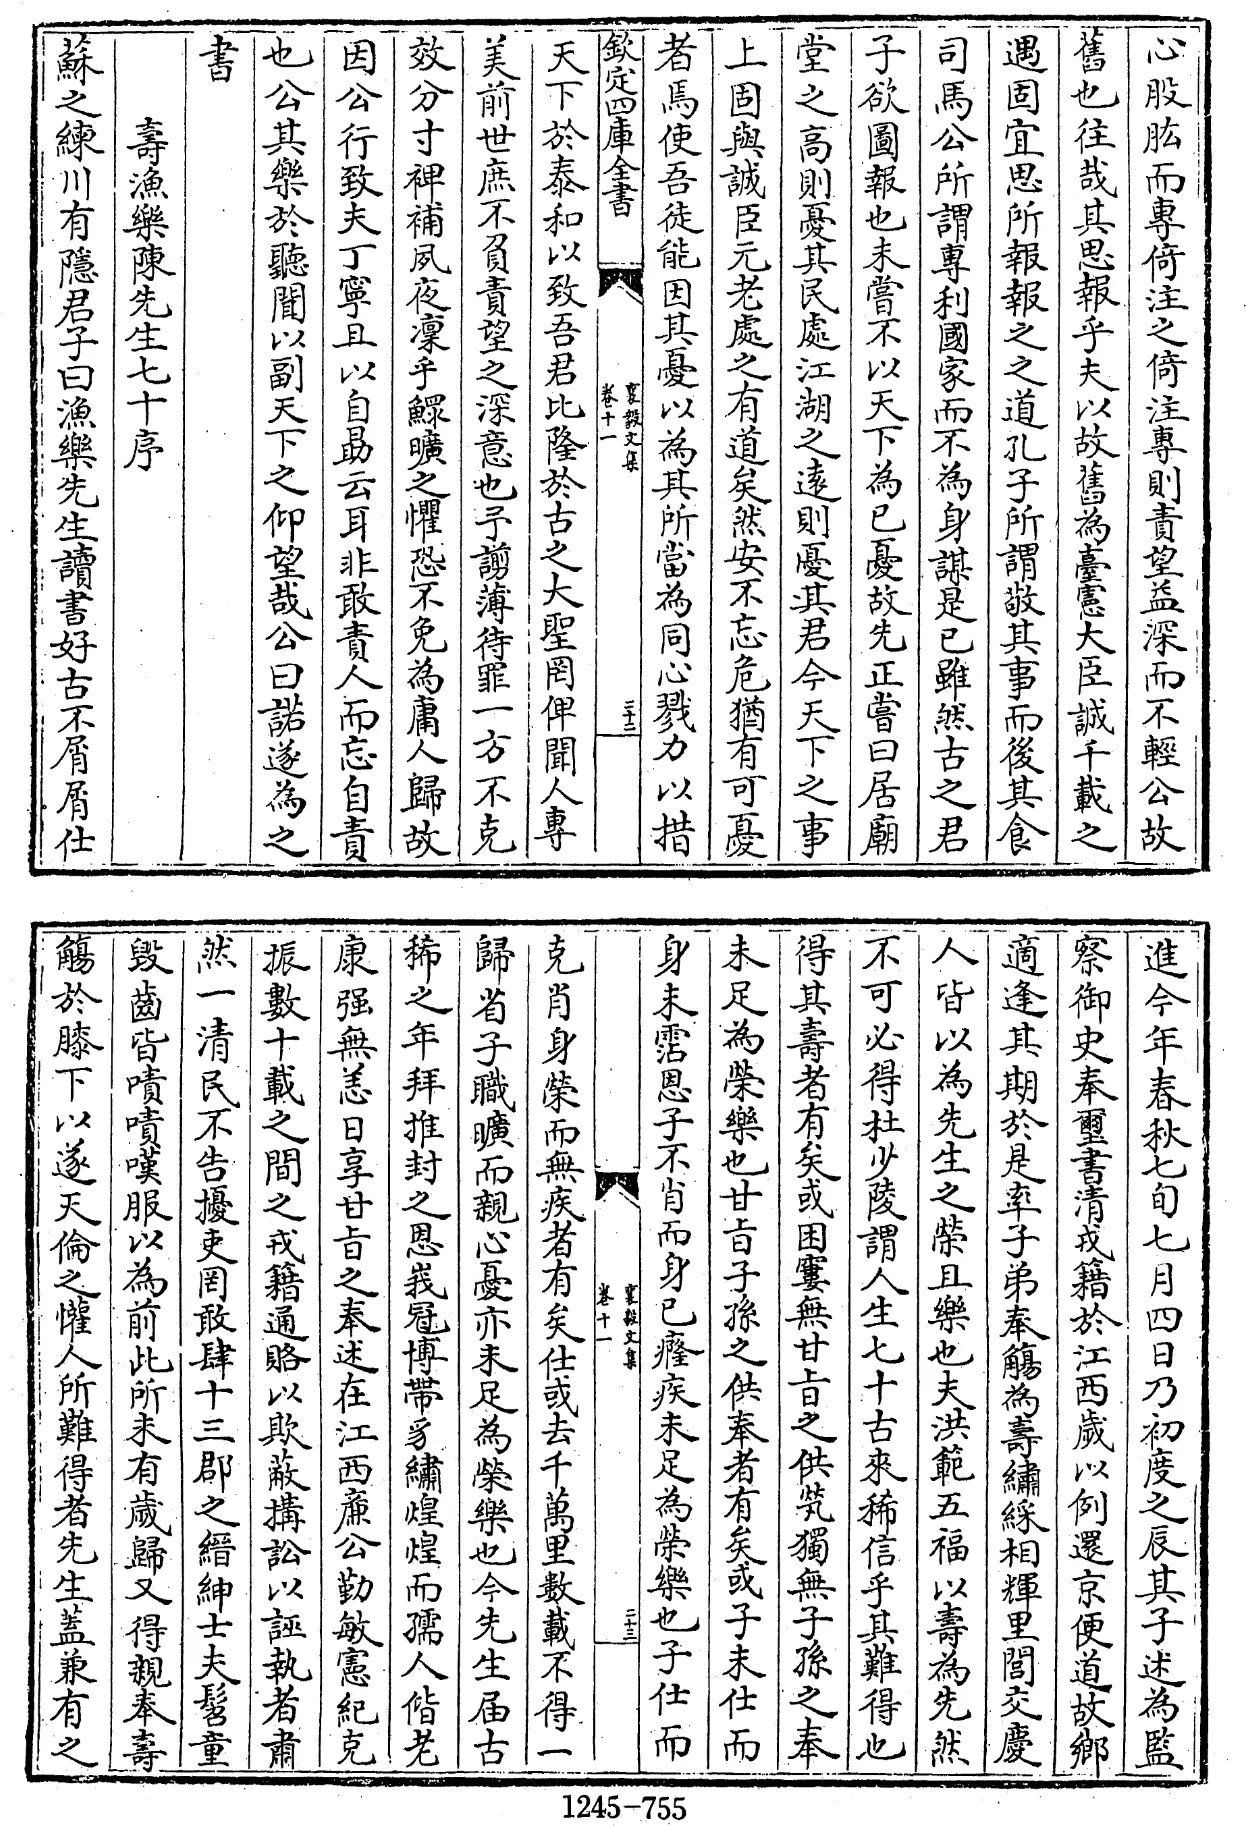 心股肱而專倚注之倚注專則責望益深而不輕公故
舊也往哉其思報乎夫以故舊為臺憲大臣誠千載之
遇固宜思所報報之之道孔子所謂敬其事而後其食
司馬公所謂專利國家而不為身謀是已雖然古之君
子欲圖報也未嘗不以天下為已憂故先正嘗曰居廟
堂之高則憂其民處江湖之遠則憂其君今天下之事
上固與誠臣元老處之有道矣然安不忘危猶有可憂
者焉使吾徒能因其憂以為其所當為同心戮力以措
欽定四庫全書
襄毅文集
卷十一
三十二
天下於泰和以致吾君比隆於古之大聖罔俾聞人專
美前世庶不負責望之深意也予謭薄待罪一方不克
效分寸裨補夙夜凜乎鰥曠之懼恐不免為庸人歸故
因公行致夫丁寧且以自勗云耳非敢責人而忘自責
也公其樂於聽聞以副天下之仰望哉公曰諾遂為之
書
壽漁樂陳先生七十序
蘇之練川有隱君子曰漁樂先生讀書好古不屑屑仕
進今年春秋七旬七月四日乃初度之辰其子述為監
察御史奉璽書清戎籍於江西歲以例還京便道故鄉
適逢其期於是率子弟奉觴為壽繡綵相輝里閭交慶
人皆以為先生之榮且樂也夫洪範五福以壽為先然
不可必得杜少陵謂人生七十古來稀信乎其難得也
得其壽者有矣或困窶無甘旨之供煢獨無子孫之奉
未足為榮樂也甘旨子孫之供奉者有矣或子未仕而
身未霑恩子不肖而身已癃疾未足為榮樂也子仕而
襄毅文集
卷十一
三十三
克肖身榮而無疾者有矣仕或去千萬里數載不得一
歸省子職曠而親心憂亦未足為榮樂也今先生屆古
稀之年拜推封之恩峩冠博帶豸繡煌煌而孺人偕老
康强無恙日享甘旨之奉述在江西廉公勤敏憲紀克
振數十載之間之戎籍通賂以欺蔽搆訟以誣執者肅
然一清民不告擾吏罔敢肆十三郡之縉紳士夫髫童
毀齒皆嘖嘖嘆服以為前此所未有歲歸又得親奉壽
觴於膝下以遂天倫之懽人所難得者先生蓋兼有之
1245-755